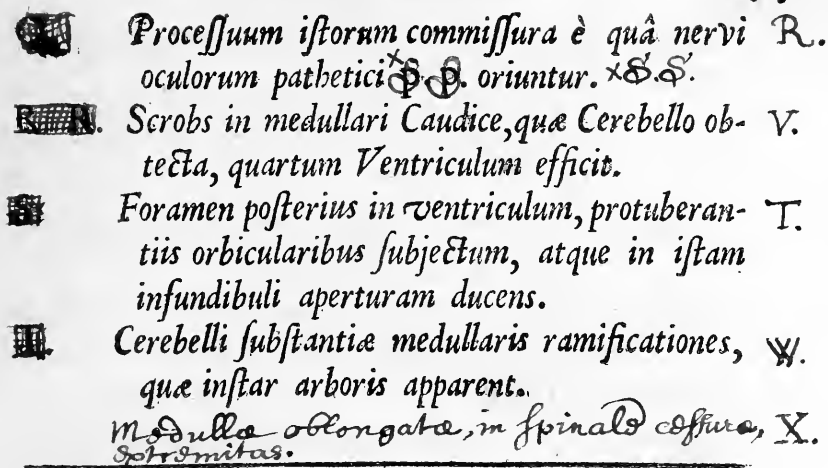 Q. Processuum istorum commissura è quâ nervi R.
oculorum pathetici ˣp. p. oriuntur. ˣS.S.
R R. Scrobs in medullari Caudice, quæ Cerebello ob- V.
tecta, quartum Ventriculum efficit.
S. Foramen posterius in ventriculum, protuberan- T.
tiis orbicularibus subjectum, atque in istam
infundibuli aperturam ducens.
T. Cerebelli substantiæ medullaris ramificationes, W.
quæ instar arboris apparent.
Medullæ oblongatæ, in spinale cessuræ, X.
extremitas.